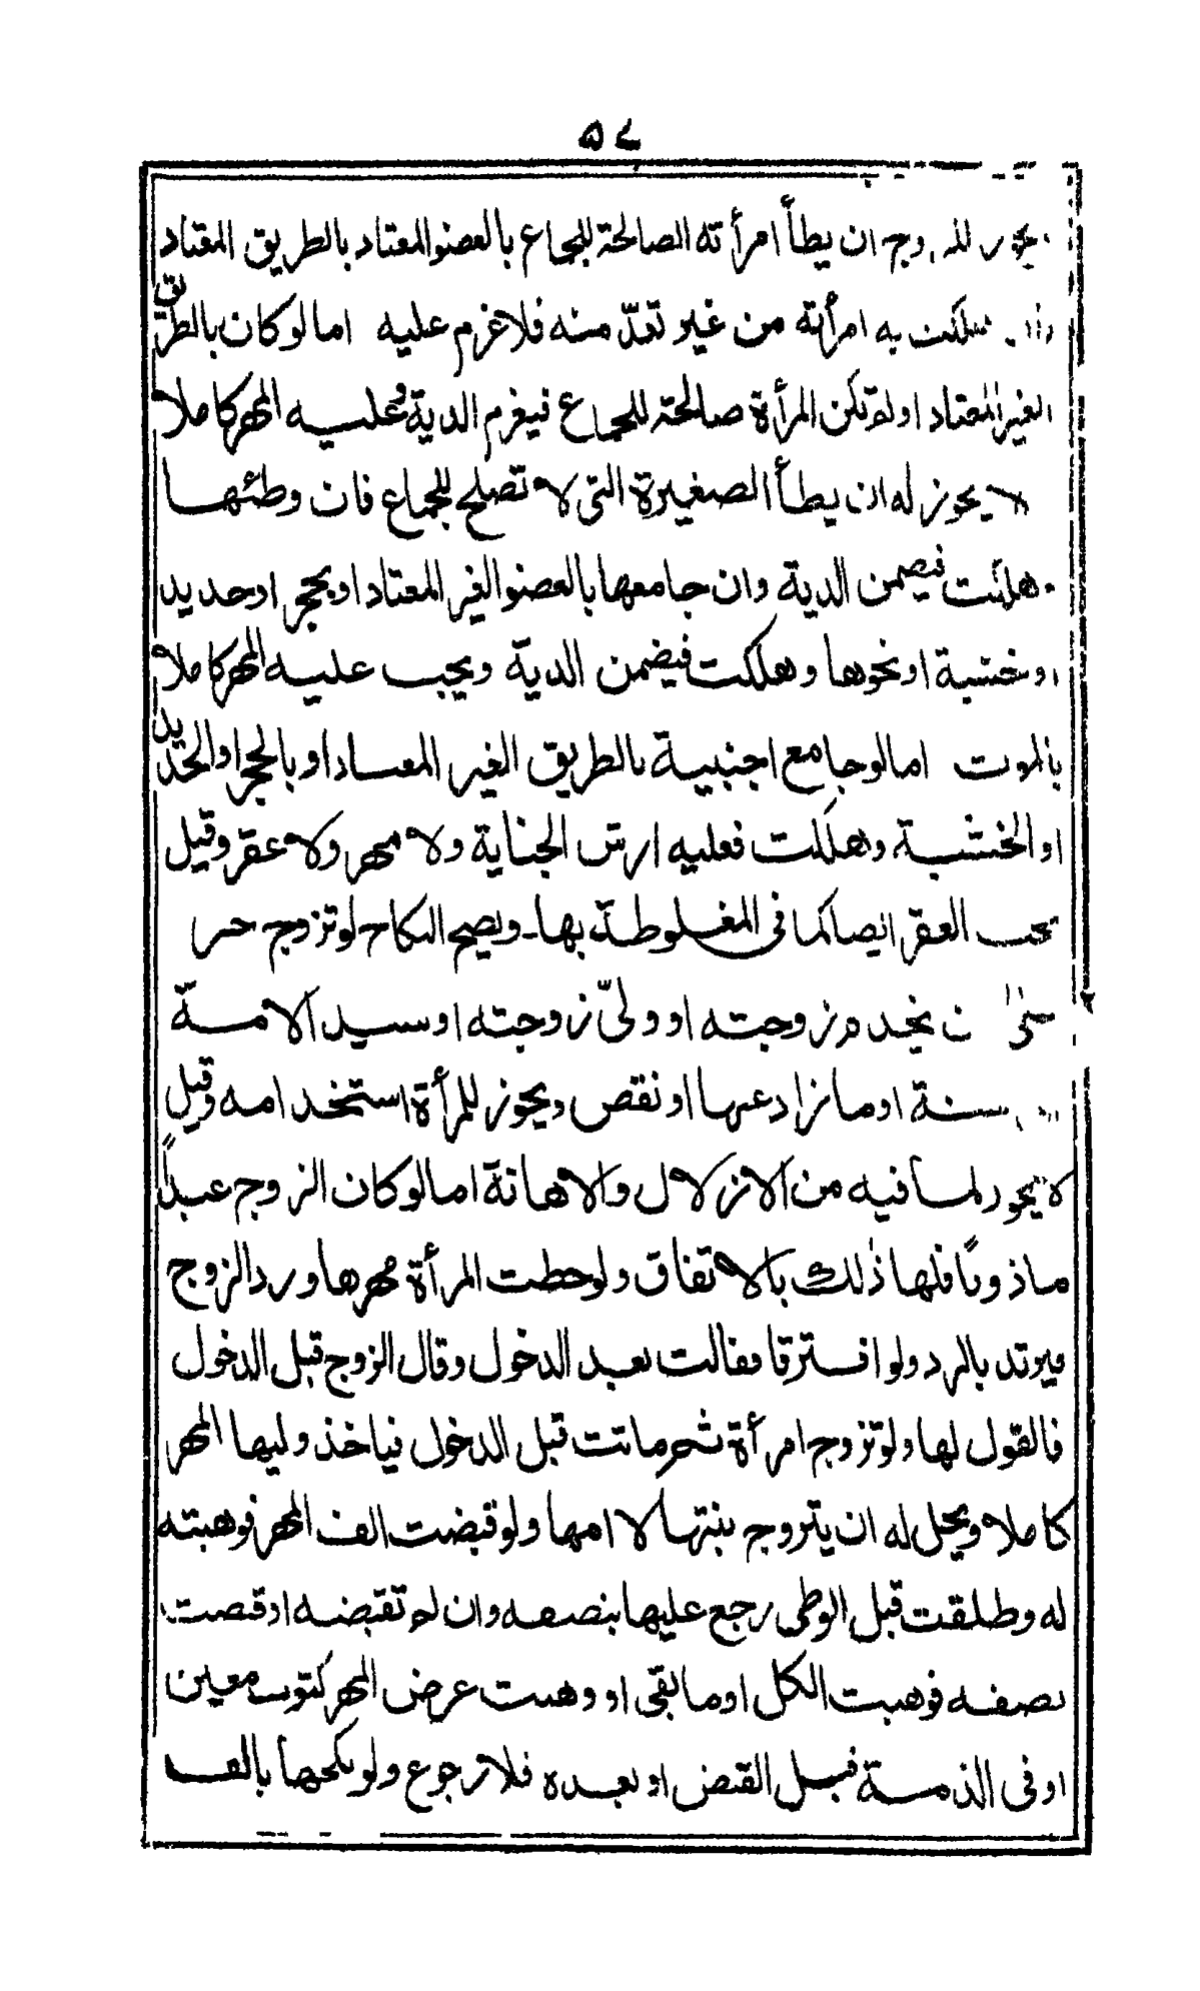 ٥٧
يجوز للزوج ان يطأ امرأته الصالحة للجماع بالعضو المعتاد بالطريق المعتاد
هلكت به امرأته من غير تعدّ منه فلا غرم عليه اما لو كان بالطريق
الغير المعتاد او لم تكن المرأة صالحة للجماع فيغرم الدية وعليه المهر كاملا
لا يجوز له ان يطأ الصغيرة التى لا تصلح للجماع فان وطئها
وهلكت فيضمن الدية وان جامعها بالعضو الغير المعتاد او بحجر او حديد
او خشبة او نحوها وهلكت فيضمن الدية ويجب عليه المهر كاملا
بالموت اما لو جامع اجنبية بالطريق الغير المعتاد او بالحجر او الحديد
او الخشبة وهلكت فعليه ارش الجناية ولا مهر ولا عقر وقيل
يجب العقر ايضا كما فى المغلوطة بها۔ ويصح النكاح لو تزوج حر
على ان يخدم زوجته او ولىّ زوجته او سيد الامة
سنة او ما زاد عنها او نقص ويجوز للمرأة استخدامه وقيل
لا يجوز لما فيه من الازلال والاهانة اما لو كان الزوج عبداً
ماذوناً فلها ذٰلك بالاتفاق ولو حطت المرأة مهرها ورد الزوج
فيرتد بالرد ولو افترقا فقالت بعد الدخول وقال الزوج قبل الدخول
فالقول لها ولو تزوج امرأة ثم ماتت قبل الدخول فياخذ وليها المهر
كاملا ويحل له ان يتزوج بنتها لا امها ولو قبضت الف المهر فوهبته
له وطلقت قبل الوطى رجع عليها بنصفه وان لم تقبضه او قبضت
نصفه فوهبت الكل او ما بقى او وهبت عرض المهر كثوب معين
او فى الذمة قبل القبض او بعده فلا رجوع ولو نكحها بالف